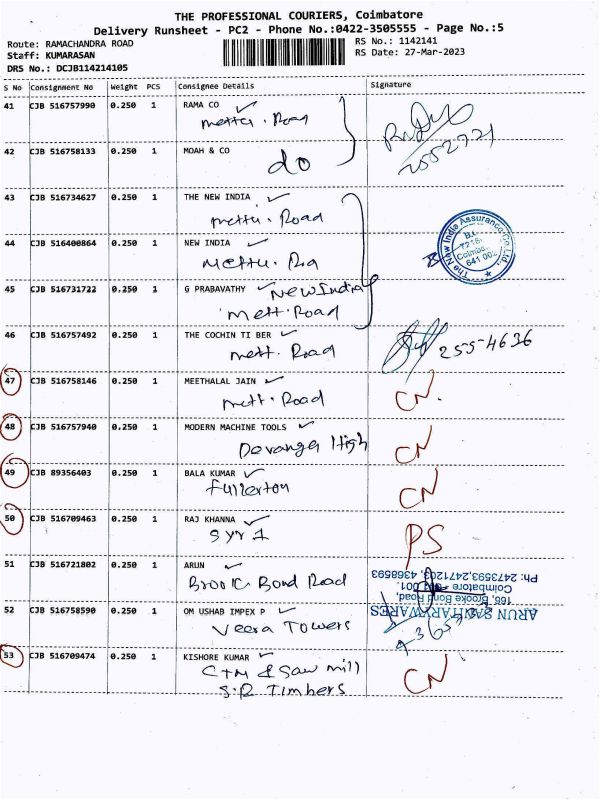 THE PROFESSIONAL COURIERS, Coimbatore
Delivery Runsheet - PC2 - Phone No.:0422-3505555 - Page No.:5
Route: RAMACHANDRA ROAD
RS No.: 1142141
Staff: KUMARASAN
RS Date: 27-Mar-2023
DRS No.: DCJB114214105
S No Consignment No Weight PCS Consignee Details Signature
41 CJB 516757990 0.250 1 RAMA CO
Mettu. Road
2552721
42 CJB 516758133 0.250 1 MOAH & CO
do
43 CJB 516734627 0.250 1 THE NEW INDIA
Mettu. Road
The New India Assurance Co. Ltd.,
Coimbatore
641 002
44 CJB 516400864 0.250 1 NEW INDIA
Mettu. Rd
45 CJB 516731722 0.250 1 G PRABAVATHY New India
Mett. Road
46 CJB 516757492 0.250 1 THE COCHIN TI BER
Mett. Road
2554636
47 CJB 516758146 0.250 1 MEETHALAL JAIN
Mett. Road
CN.
48 CJB 516757940 0.250 1 MODERN MACHINE TOOLS
Devanga High
CN
49 CJB 89356403 0.250 1 BALA KUMAR
Fullerton
CN
50 CJB 516709463 0.250 1 RAJ KHANNA
Syr 1
PS
51 CJB 516721802 0.250 1 ARUN
Brook. Bond Road
ARUN SANITARYWARES
166, Brooke Bond Road,
Coimbatore - 641 001.
Ph: 2473593,2471203, 4368593
52 CJB 516758590 0.250 1 OM USHAB IMPEX P
Veera Towers
53 CJB 516709474 0.250 1 KISHORE KUMAR
CTM & Saw mill
S.R Timbers
CN